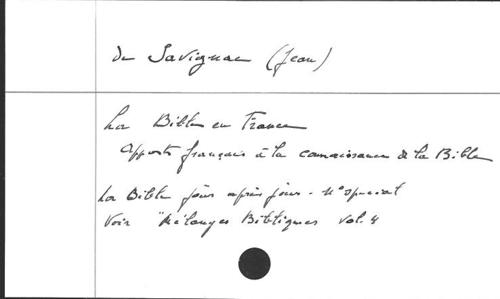 de Savignac (Jean)
La Bible en France
Apports français à la connaissance de la Bible
La Bible jours après jours - N° special
Voir "Mélanges Bibliques vol. 4